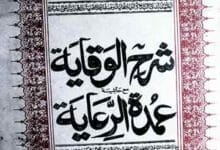 شرح الوقاية
عمدة الرعاية